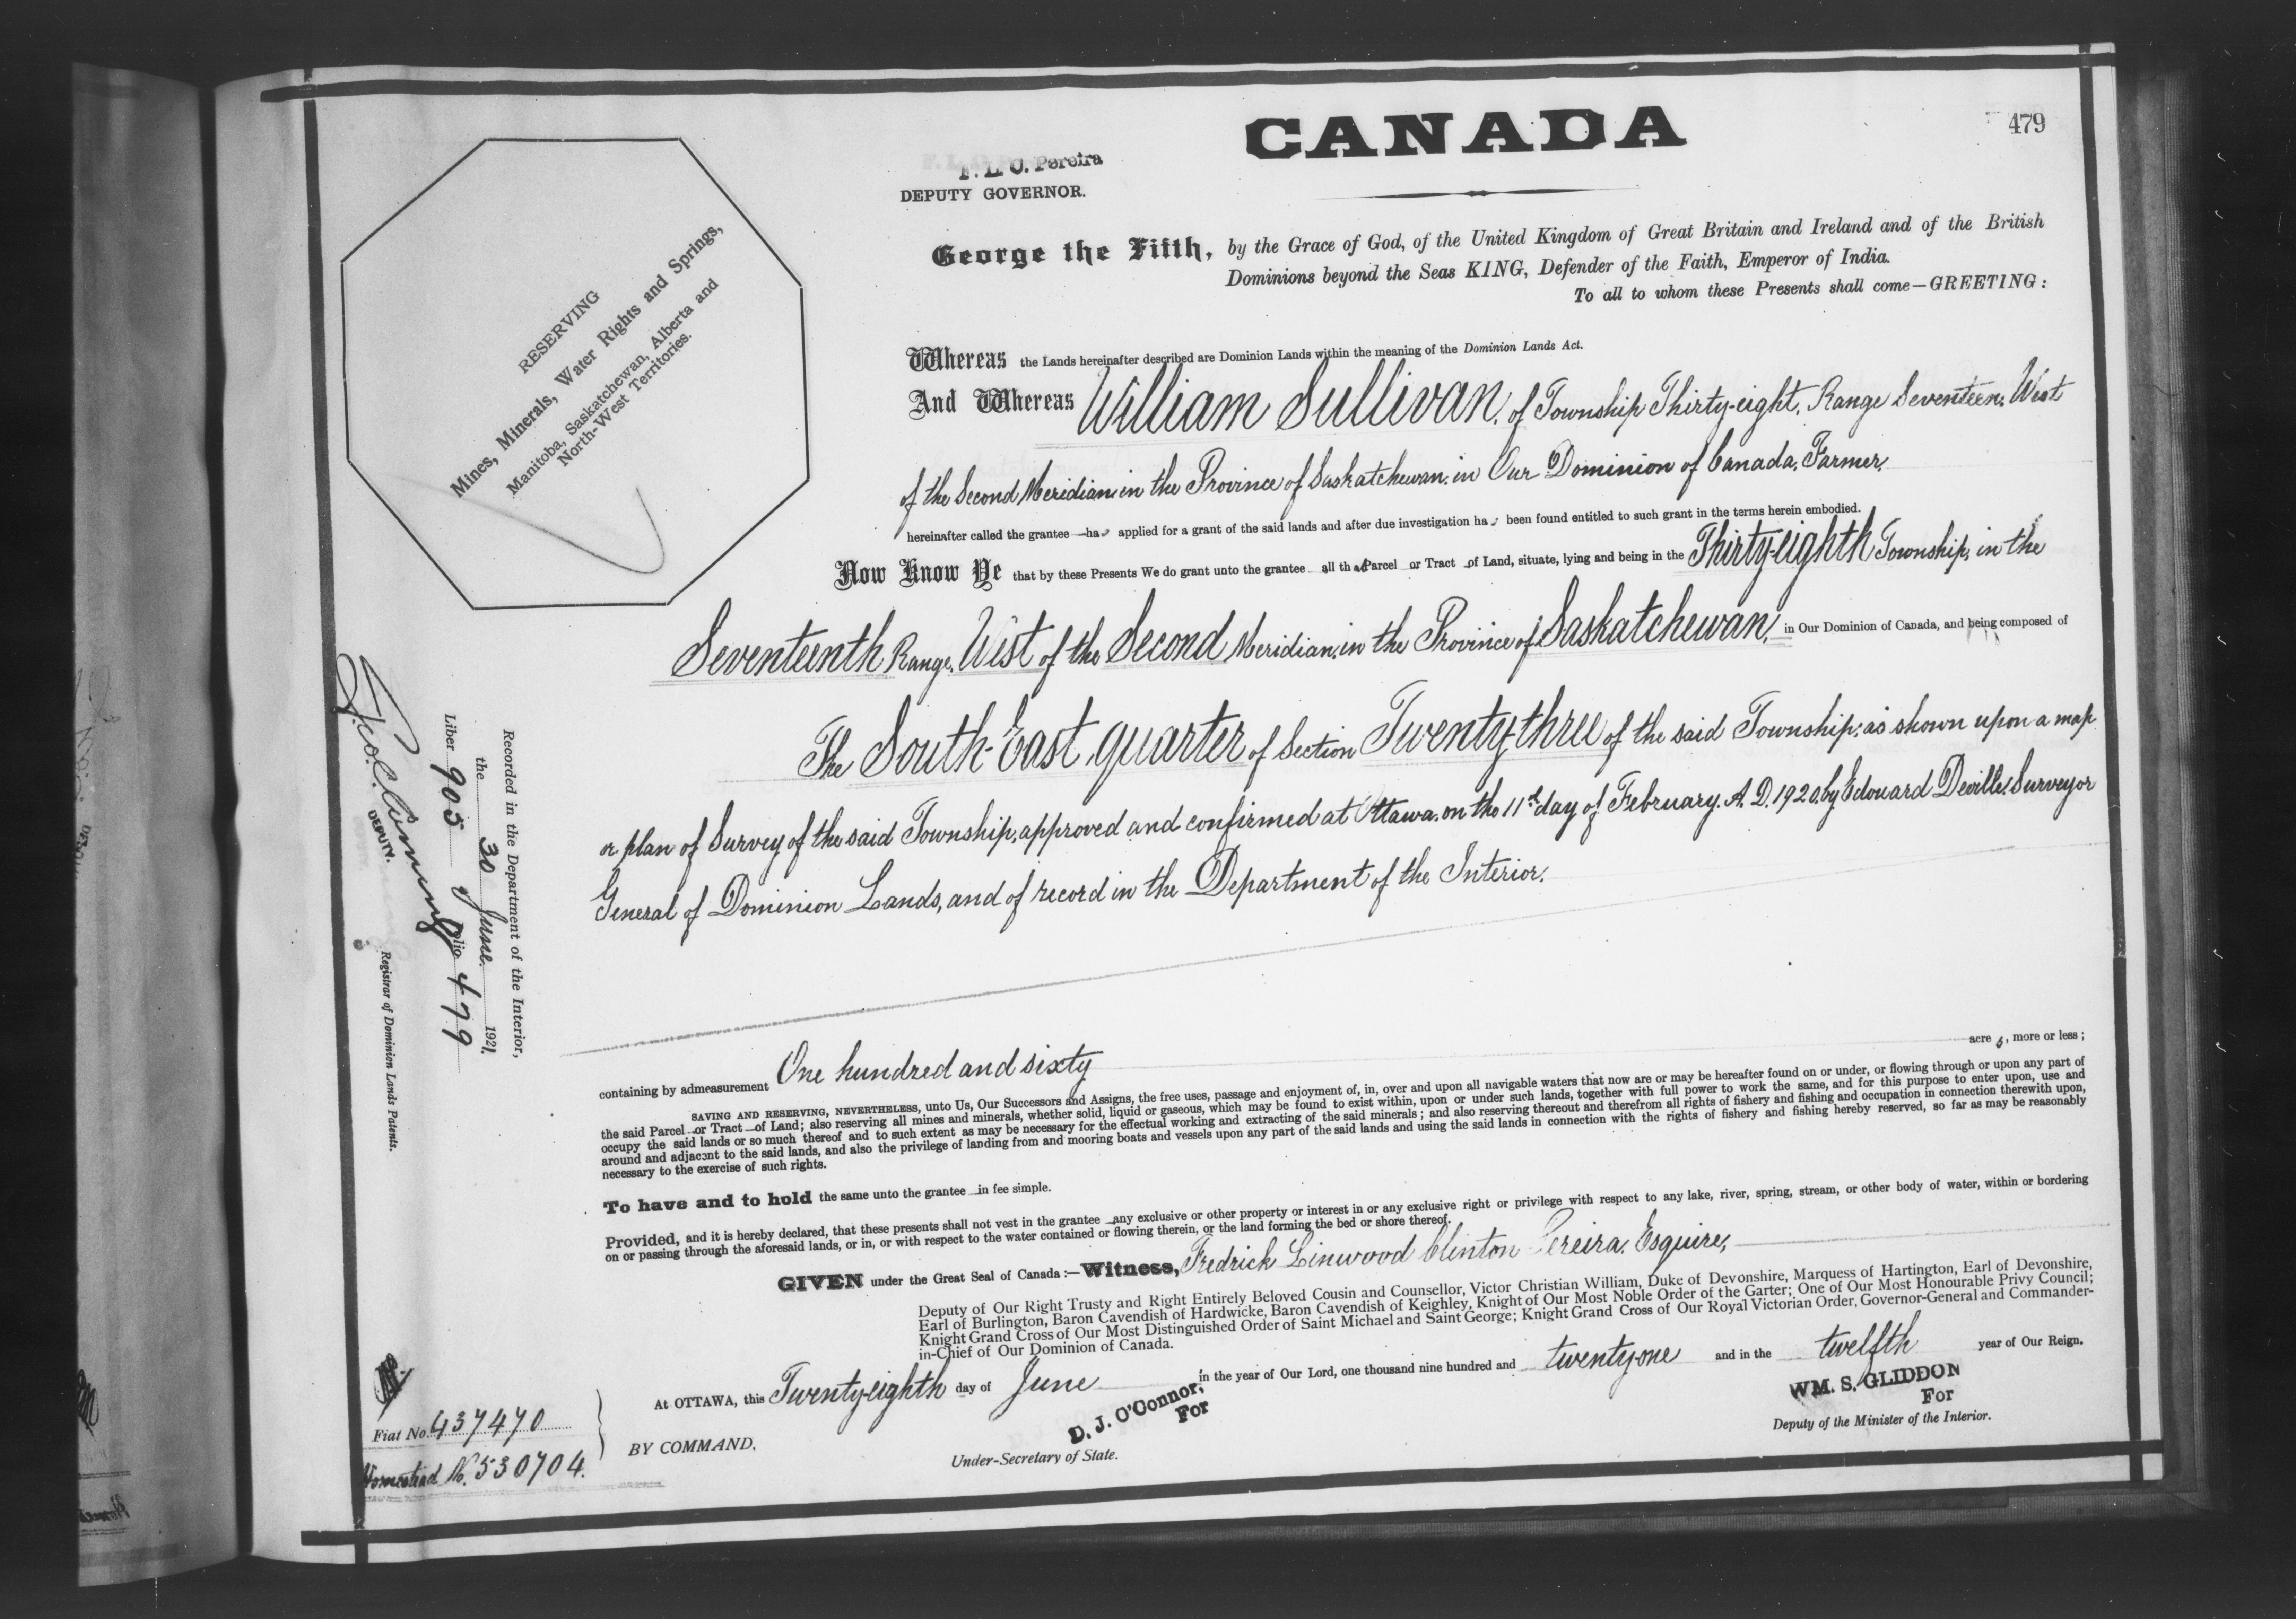 CANADA
479
F. L. C. Pereira
DEPUTY GOVERNOR.
George the Fifth, by the Grace of God, of the United Kingdom of Great Britain and Ireland and of the British
Dominions beyond the Seas KING, Defender of the Faith, Emperor of India.
To all to whom these Presents shall come—GREETING:
RESERVING
Mines, Minerals, Water Rights and Springs,
Manitoba, Saskatchewan, Alberta and
North-West Territories.
Whereas the Lands hereinafter described are Dominion Lands within the meaning of the Dominion Lands Act.
And Whereas William Sullivan, of Township Thirty-eight, Range Seventeen, West
of the Second Meridian, in the Province of Saskatchewan, in Our Dominion of Canada, Farmer,
hereinafter called the grantee has applied for a grant of the said lands and after due investigation has been found entitled to such grant in the terms herein embodied.
Now Know Ye that by these Presents We do grant unto the grantee all that Parcel or Tract of Land, situate, lying and being in the Thirty-eighth Township, in the
Seventeenth Range, West of the Second Meridian, in the Province of Saskatchewan, in Our Dominion of Canada, and being composed of
The South-East quarter of Section Twenty-three of the said Township, as shown upon a map
or plan of Survey of the said Township, approved and confirmed at Ottawa, on the 11th day of February, A. D. 1920, by Edouard Deville, Surveyor
General of Dominion Lands, and of record in the Department of the Interior.
containing by admeasurement One hundred and sixty acres, more or less;
SAVING AND RESERVING, NEVERTHELESS, unto Us, Our Successors and Assigns, the free uses, passage and enjoyment of, in, over and upon all navigable waters that now are or may be hereafter found on or under, or flowing through or upon any part of
the said Parcel or Tract of Land; also reserving all mines and minerals, whether solid, liquid or gaseous, which may be found to exist within, upon or under such lands, together with full power to work the same, and for this purpose to enter upon, use and
occupy the said lands or so much thereof and to such extent as may be necessary for the effectual working and extracting of the said minerals; and also reserving thereout and therefrom all rights of fishery and fishing and occupation in connection therewith upon,
around and adjacent to the said lands, and also the privilege of landing from and mooring boats and vessels upon any part of the said lands and using the said lands in connection with the rights of fishery and fishing hereby reserved, so far as may be reasonably
necessary to the exercise of such rights.
To have and to hold the same unto the grantee in fee simple.
Provided, and it is hereby declared, that these presents shall not vest in the grantee any exclusive or other property or interest in or any exclusive right or privilege with respect to any lake, river, spring, stream, or other body of water, within or bordering
on or passing through the aforesaid lands, or in, or with respect to the water contained or flowing therein, or the land forming the bed or shore thereof.
GIVEN under the Great Seal of Canada:—Witness, Fredrick Linwood Clinton Pereira, Esquire,
Deputy of Our Right Trusty and Right Entirely Beloved Cousin and Counsellor, Victor Christian William, Duke of Devonshire, Marquess of Hartington, Earl of Devonshire,
Earl of Burlington, Baron Cavendish of Hardwicke, Baron Cavendish of Keighley, Knight of Our Most Noble Order of the Garter; One of Our Most Honourable Privy Council;
Knight Grand Cross of Our Most Distinguished Order of Saint Michael and Saint George; Knight Grand Cross of Our Royal Victorian Order, Governor-General and Commander-
in-Chief of Our Dominion of Canada.
At OTTAWA, this Twenty-eighth day of June in the year of Our Lord, one thousand nine hundred and twenty-one and in the twelfth year of Our Reign.
BY COMMAND,
D. J. O'Connor,
For
Under-Secretary of State.
WM. S. GLIDDON
For
Deputy of the Minister of the Interior.
Recorded in the Department of the Interior,
the 30 June 1921.
Liber 905 Folio 479
DEPUTY.
Registrar of Dominion Lands Patents.
Fiat No. 437470
Homestead No. 530704.